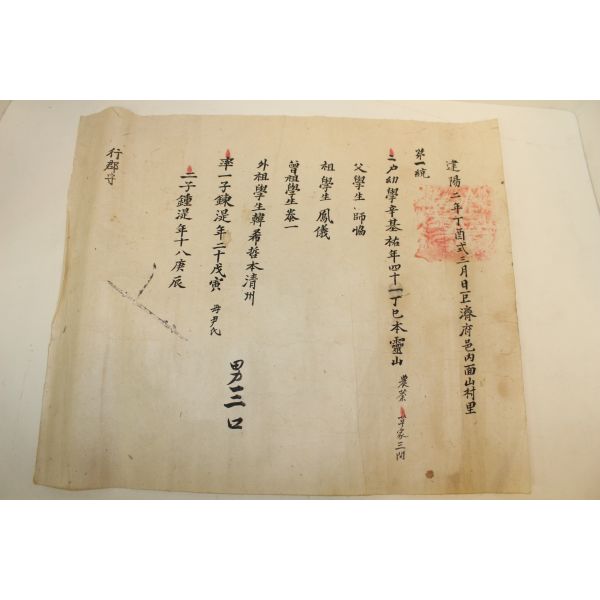 建陽二年丁酉式三月日 濟府邑內面山村里
第一統
二戶幼學辛基祐年四十一丁巳本靈山 農業 草家三間
父學生 師
祖學生鳳儀
曾祖學生泰一
外祖學生韓希哲本清州
率一子鍊湜年二十戊寅 母尹氏
二子鍾湜年十八庚辰
男三口
行郡守